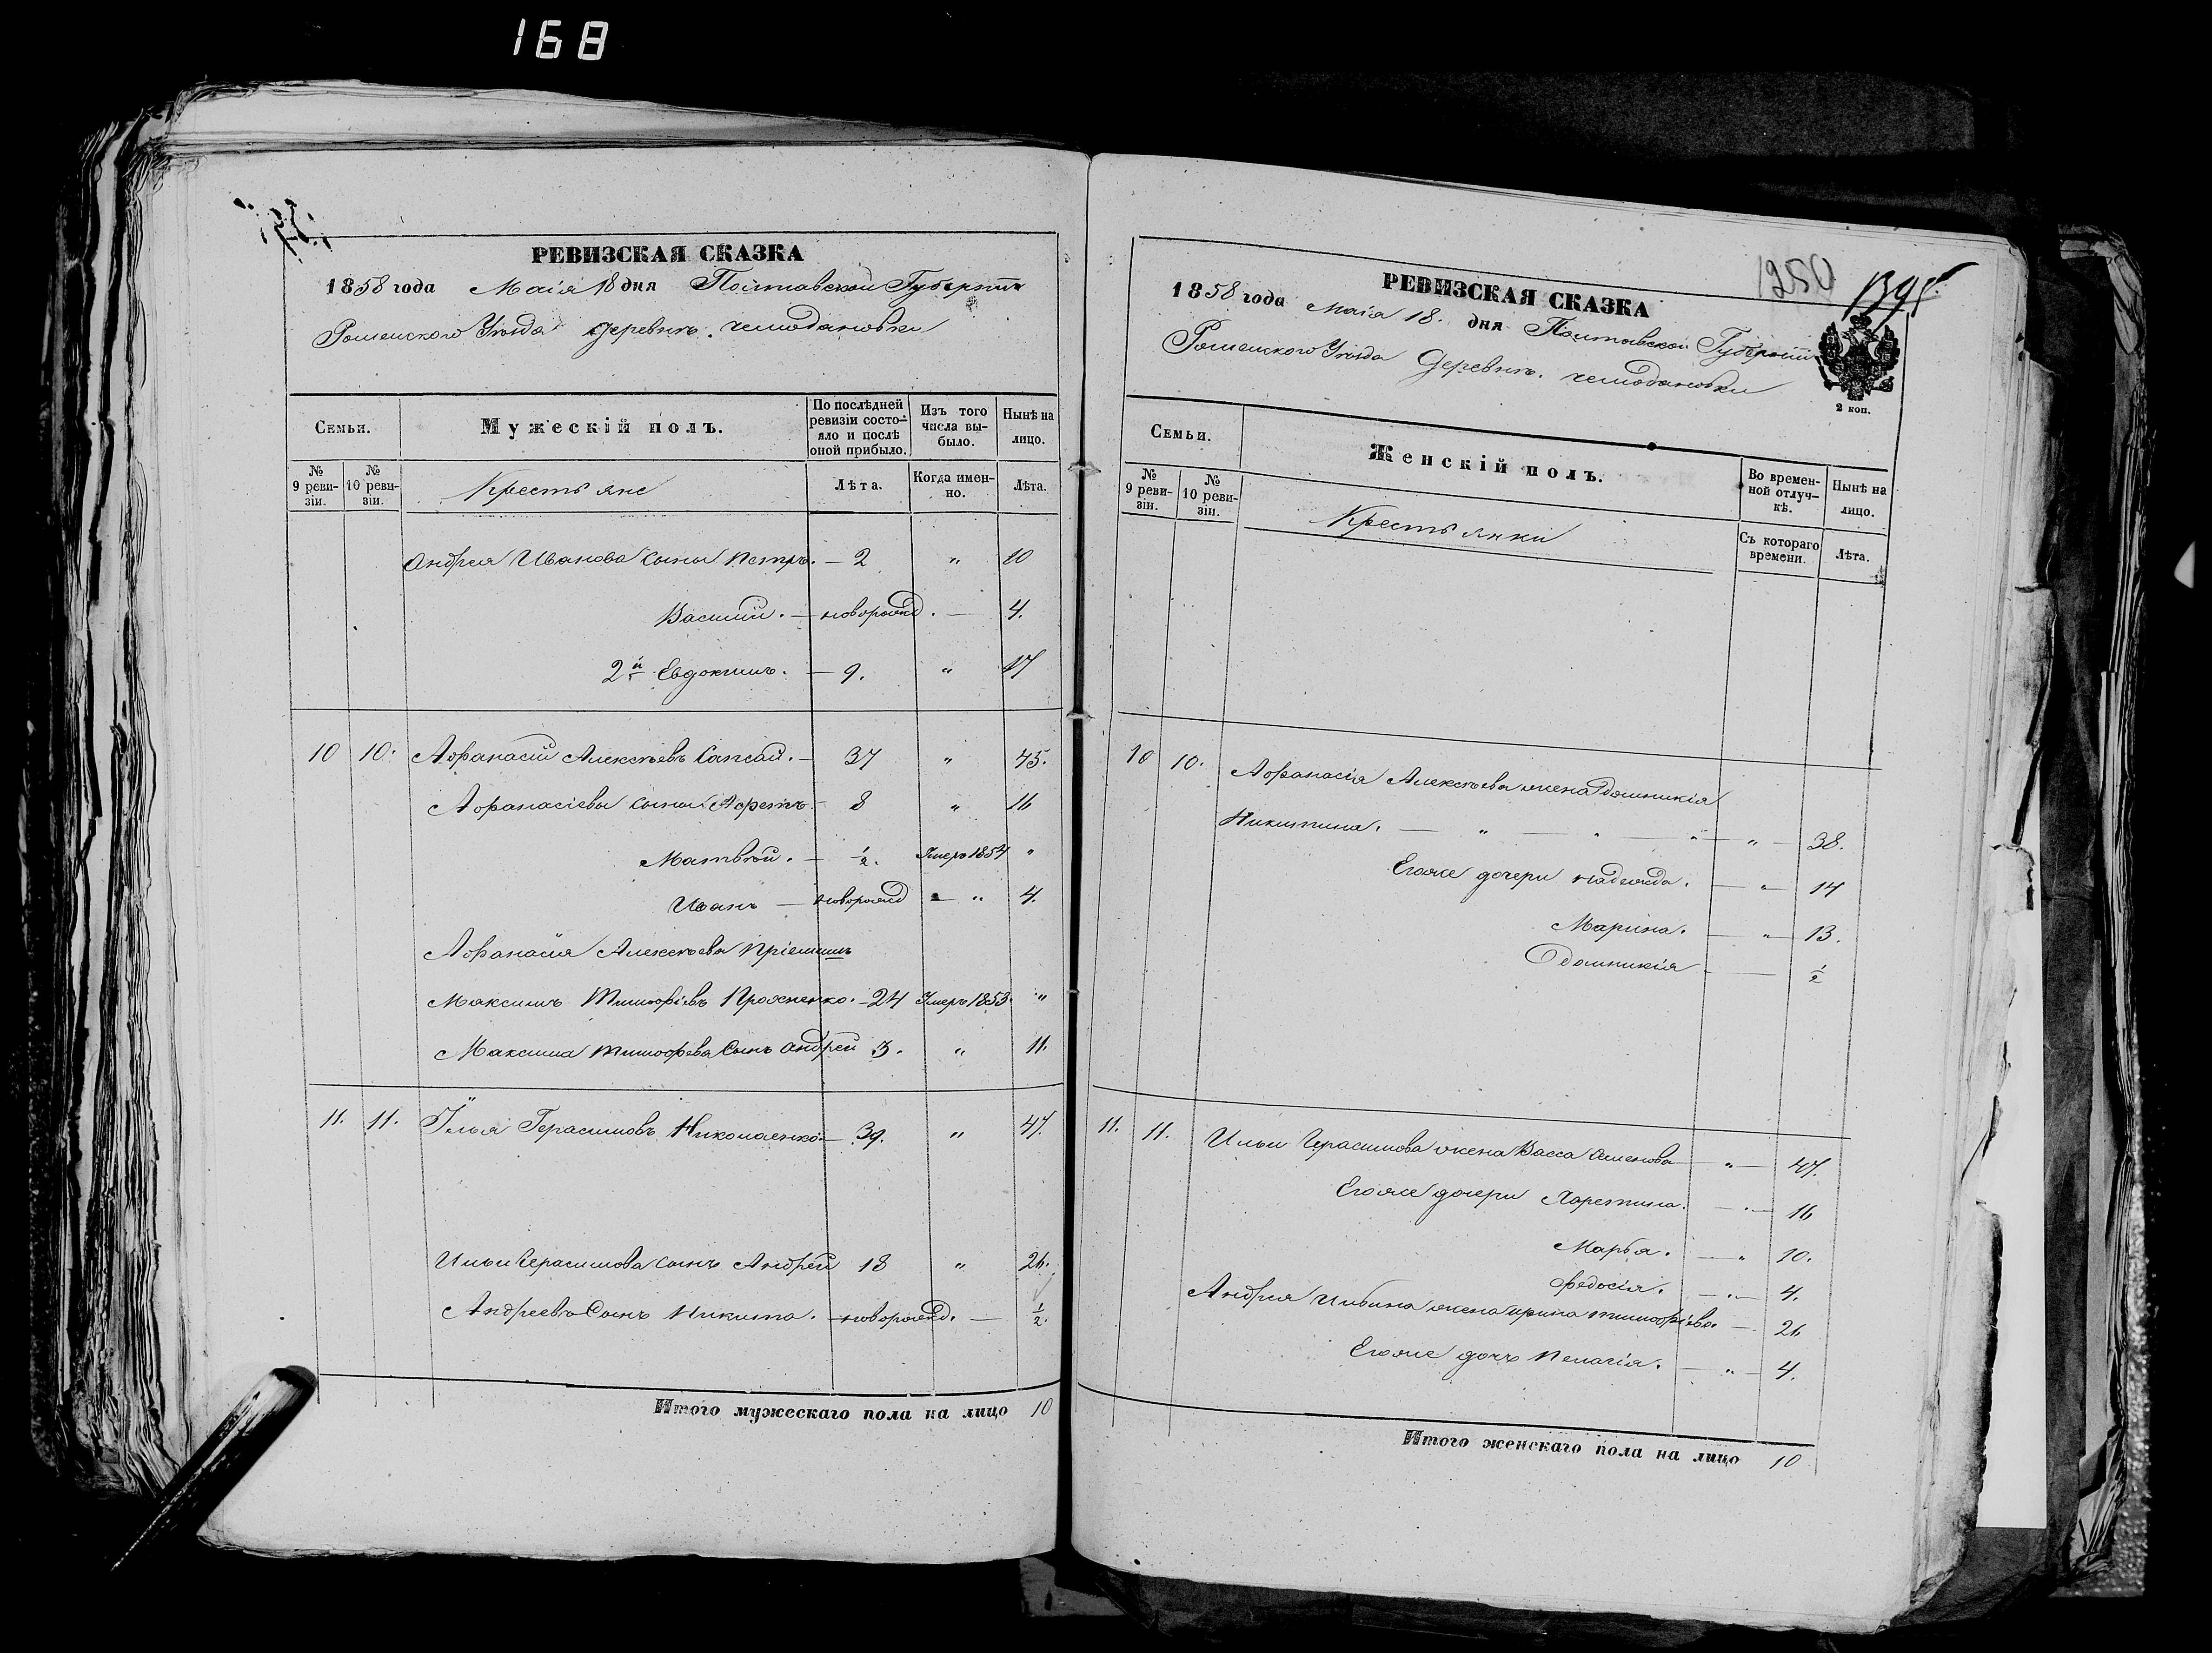 168
РЕВИЗСКАЯ СКАЗКА
1858 года Маія 18 дня Полтавской Губерніи
Роменского Уѣзда деревни. чемодановки
Семьи.
Мужескій полъ.
По послѣдней ревизіи состояло и послѣ оной прибыло.
Изъ того числа выбыло.
Нынѣ на лицо.
№ 9 ревизіи.
№ 10 ревизіи.
Крестьяне
Лѣта.
Когда именно.
Лѣта.
Андрея Иванова сыны Петръ. — 2 " 10
Василій. — новорожд. — 4.
2й Евдокимъ. — 9. " 17
10 10. Афанасій Алексѣевъ Сапсай. — 37 " 45.
Афанасіевы сыны Арефъ — 8 " 16
Матвѣй. — ½. Умеръ 1854 "
Иванъ — новорожд — " 4.
Афанасія Алексѣева пріемышъ
Максимъ Тимофіевъ Прохненко. — 24 Умеръ 1853. "
Максима Тимофева Сынъ Андрей 3. " 11.
11. 11. Илья Герасимовъ Николаенко — 39. " 47.
Ильи Герасимова сынъ Андрей 18 " 26.
Андреевъ Сынъ Никита. — новорожд. — ½.
Итого мужескаго пола на лицо 10
1250 1395
РЕВИЗСКАЯ СКАЗКА
1858 года маія 18. дня Полтавской Губерніи
Роменского Уѣзда Деревни. чемодановки
2 коп.
Семьи.
Женскій полъ.
Во временной отлучкѣ.
Нынѣ на лицо.
№ 9 ревизіи.
№ 10 ревизіи.
Крестьянки
Съ котораго времени.
Лѣта.
10 10. Афанасія Алексѣева жена Домникія
Никитина. — " — " — " — 38.
Егоже дочери надежда. — " — 14
Марина. — " — 13.
Домникія — — ½
11. 11. Ильи Герасимова жена Васса Семенова — " — 47.
Егоже дочери Харетина. — " — 16
Марья. — " 10.
Федосія. — " — 4.
Андрея Ильина жена ирина тимофіева. — 26
Егоже дочь Пелагія. — " — 4.
Итого женскаго пола на лицо 10